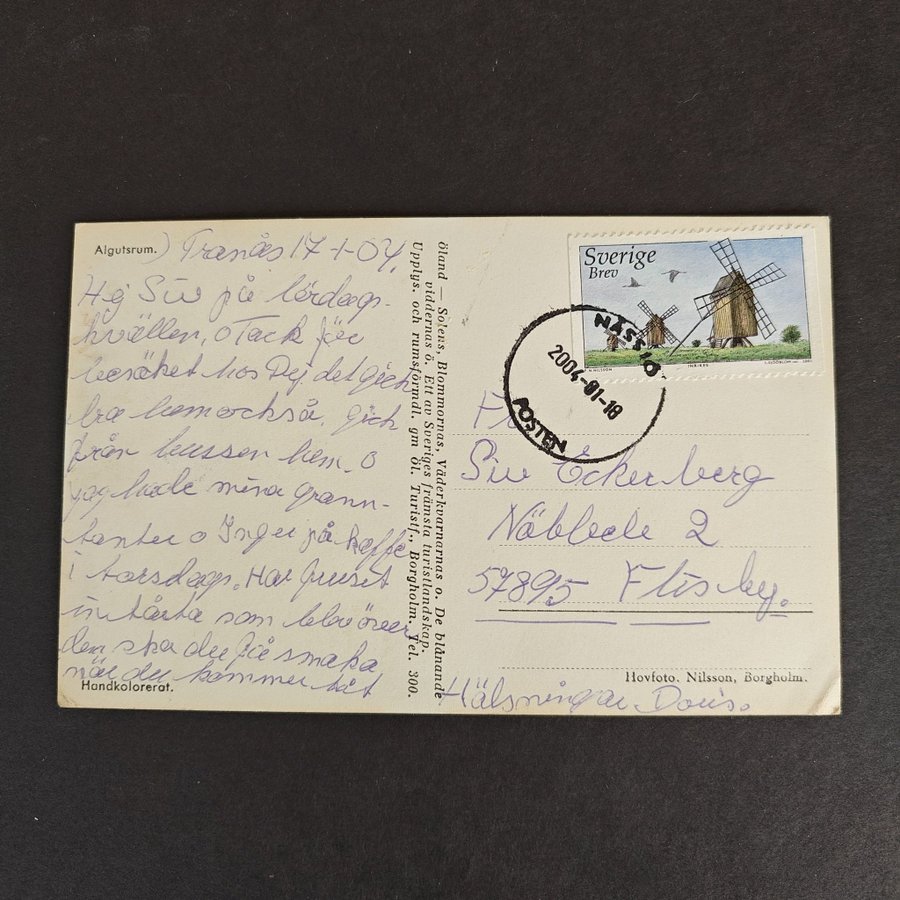 Algutsrum.
Tranås 17-1-04.
Hej Siw på lördags-
kvällen, o Tack för
besöket hos Dej det gick
bra hem också, gick
från bussen hem. o
jag hade mina grann-
tanter o Inger på kaffe
i torsdags. Har fruset
in tårta som blev över
den ska du få smaka
när du kommer hit
Handkolorerat.
Öland — Solens, Blommornas, Väderkvarnarnas o. De blånande
viddernas ö. Ett av Sveriges främsta turistlandskap.
Upplys. och rumsförmdl. gm Öl. Turistf., Borgholm. Tel. 300.
Sverige
Brev
NÄSSJÖ
2004-01-18
POSTEN
Siw Eckerberg
Näbbele 2
57895 Flisby.
Hovfoto. Nilsson, Borgholm.
Hälsningar Doris.